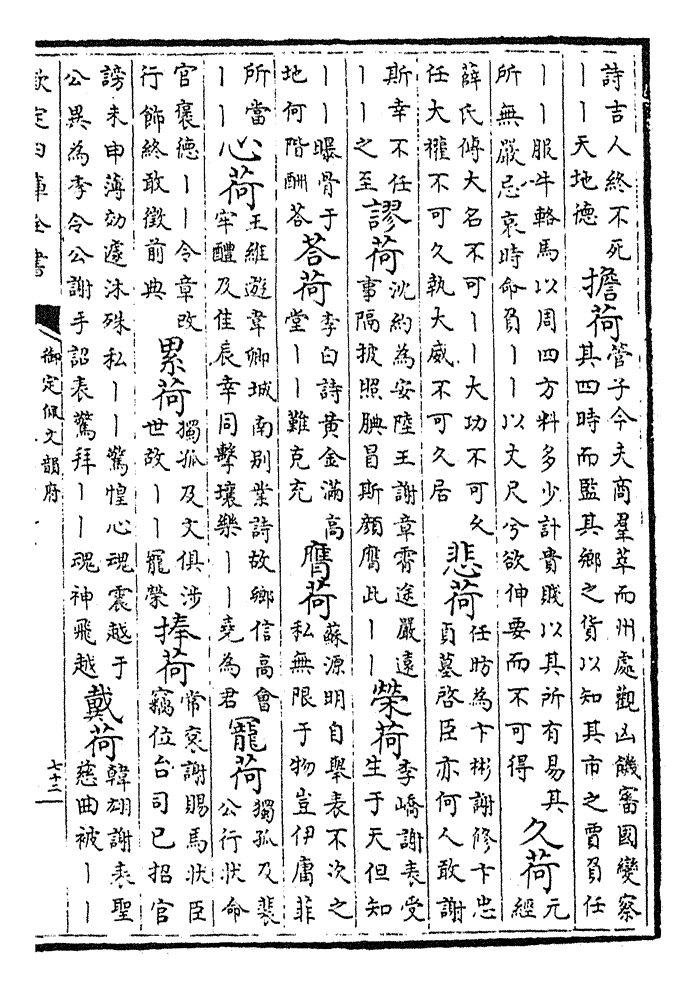 詩吉人終不死
丨丨天地德
擔荷
管子今夫商羣萃而州處觀凶饑審國變察
其四時而監其鄉之貨以知其市之賈負任
丨丨服牛輅馬以周四方料多少計貴賤以其所有易其
所無嚴忌哀時命負丨丨以丈尺兮欲伸要而不可得
久荷
元
經
薛氏傳大名不可丨丨大功不可久
任大權不可久執大威不可久居
悲荷
任昉為卞彬謝修卞忠
貞墓啓臣亦何人敢謝
斯幸不任
丨丨之至
謬荷
沈約為安陸王謝章霄途嚴遠
事隔披照腆冒斯顔膺此丨丨
榮荷
李嶠謝表受
生于天但知
丨丨曝骨于
地何階酬荅
荅荷
李白詩黄金滿高
堂丨丨難克充
膺荷
蘇源明自舉表不次之
私無限于物豈伊庸菲
所當
丨丨
心荷
王維遊韋卿城南别業詩故鄉信高會
牢醴及佳辰幸同擊壤樂丨丨堯為君
寵荷
獨孤及裴
公行狀命
官褒德丨丨令章改
行飾終敢徵前典
累荷
獨孤及文俱涉
世故丨丨寵榮
捧荷
常衮謝賜馬狀臣
竊位台司已招官
謗未申薄効遽沐殊私丨丨驚惶心魂震越于
公異為李令公謝手詔表驚拜丨丨魂神飛越
戴荷
韓翃謝表聖
慈曲被丨丨
欽定四庫全書
御定佩文韻府
七十三